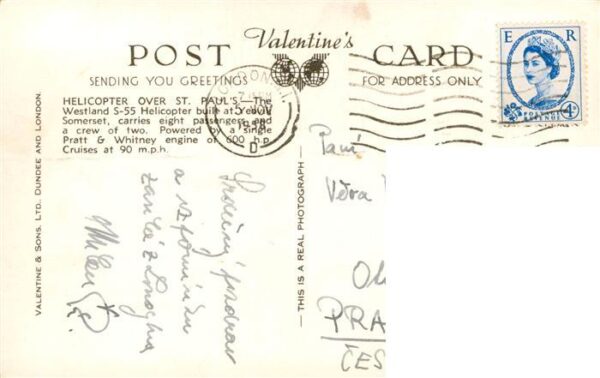 Valentine's
POST CARD
SENDING YOU GREETINGS FOR ADDRESS ONLY
HELICOPTER OVER ST. PAUL'S.—The
Westland S-55 Helicopter built at Yeovil,
Somerset, carries eight passengers and
a crew of two. Powered by a single
Pratt & Whitney engine of 600 h.p.
Cruises at 90 m.p.h.
VALENTINE & SONS, LTD. DUNDEE AND LONDON.
— THIS IS A REAL PHOTOGRAPH —
Srdečný pozdrav
a vzpomínku
zasílá z Londýna
Milan
Paní
Věra
PRA
ČES
E R
POSTAGE
REVENUE
4D